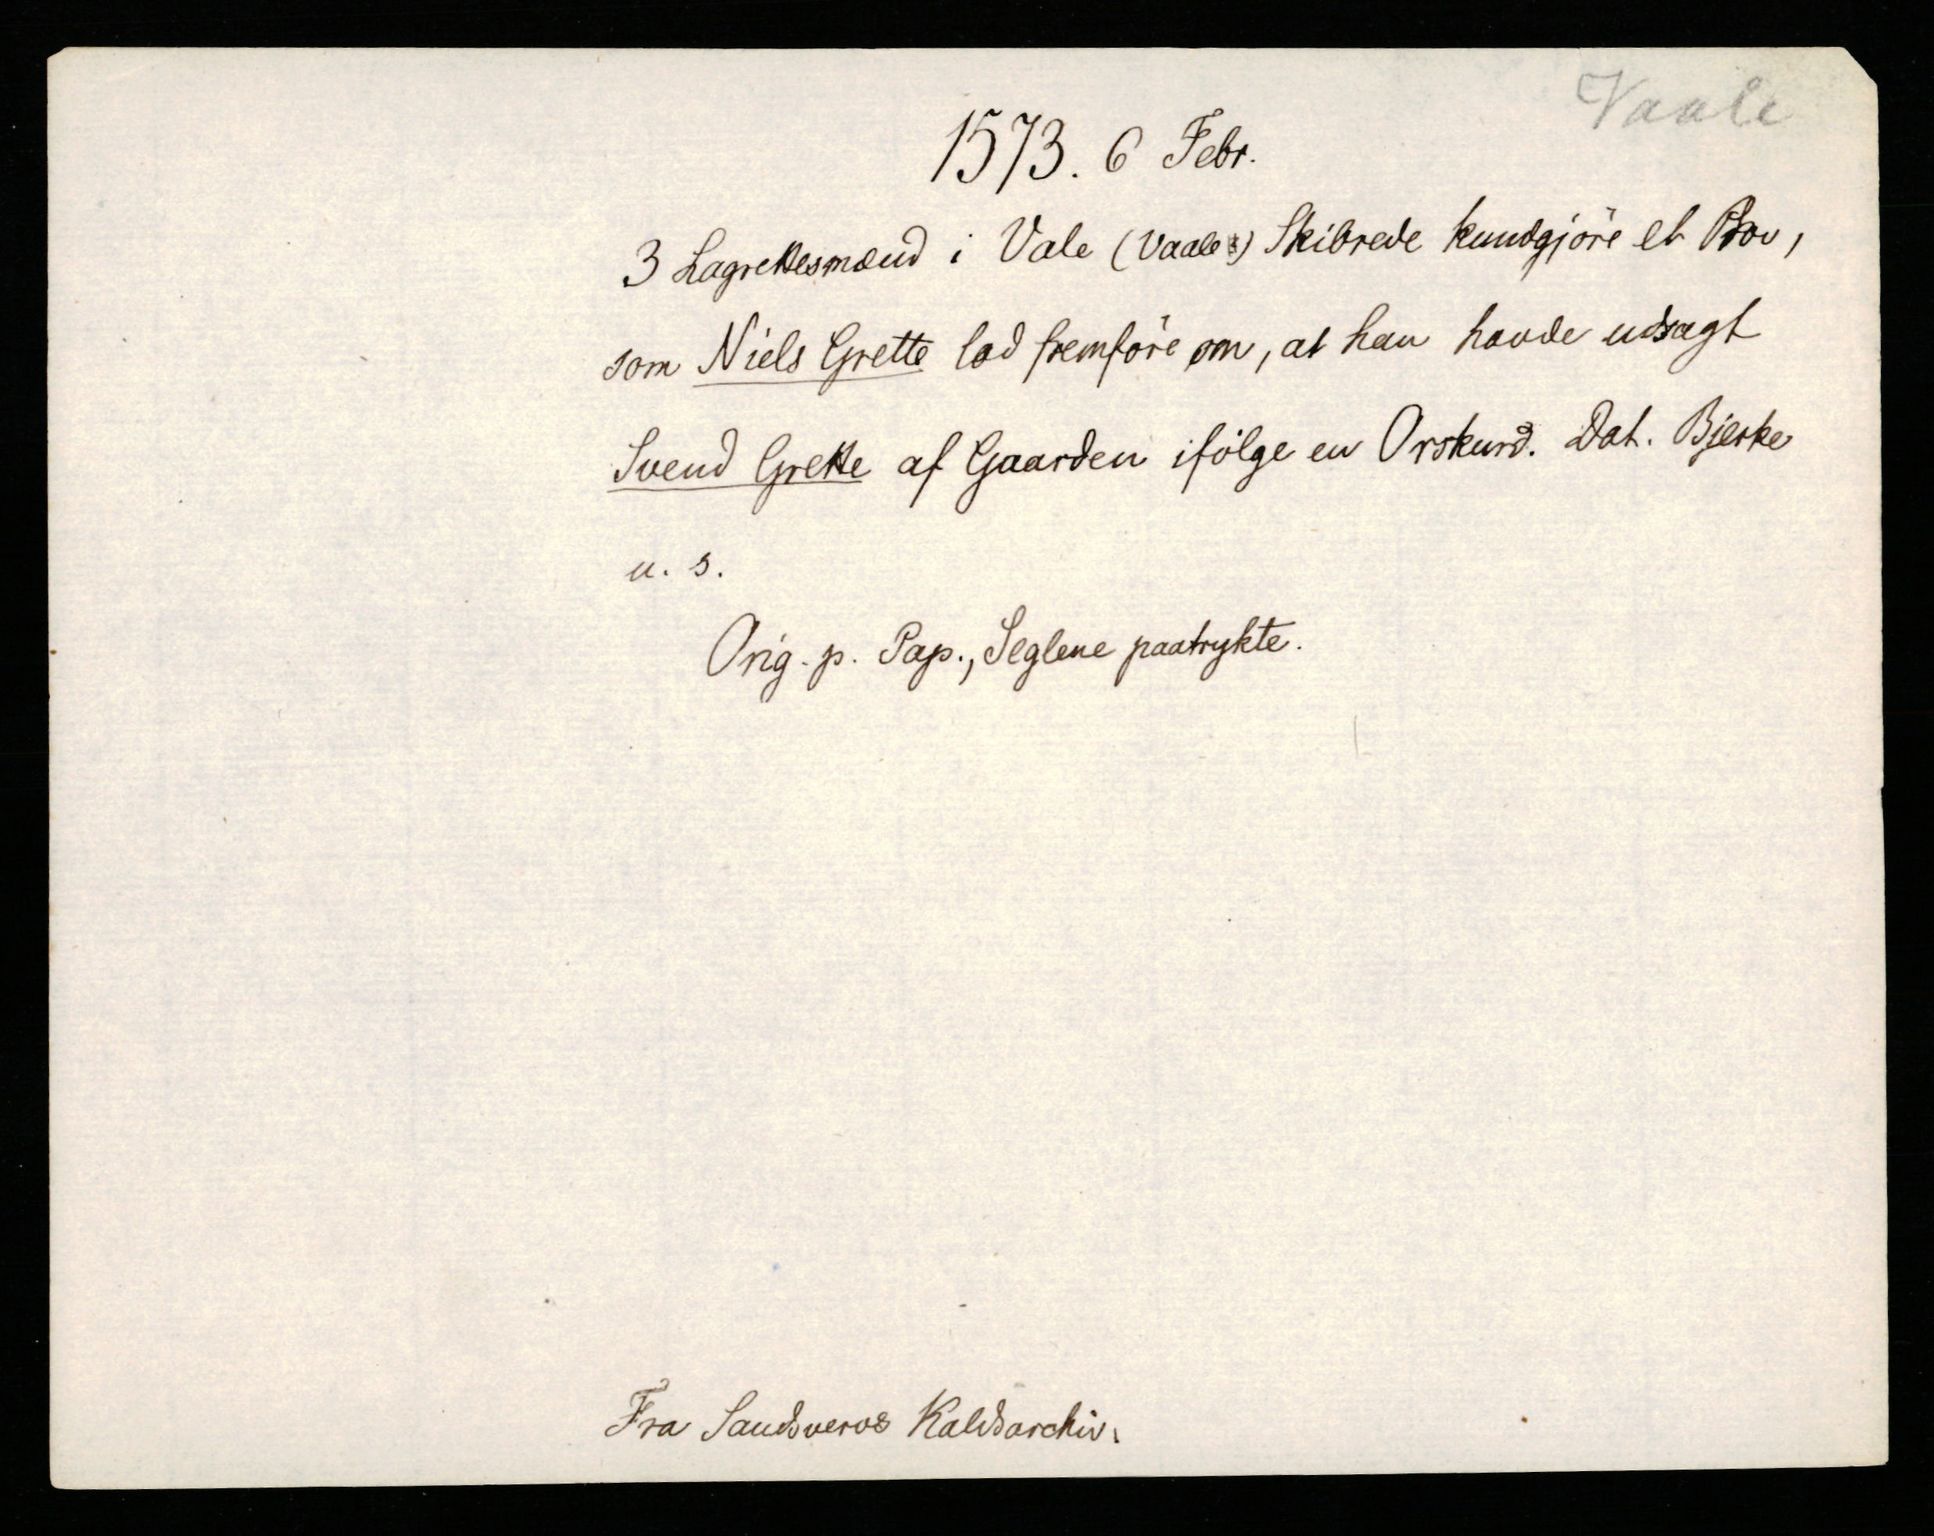 Vaale
1573. 6 Febr.
3 Lagrettesmænd i Vale (Vaale) Skibrede kundgjöre et Prov,
som Niels Grette lod fremföre om, at han havde udsagt
Svend Grette af Gaarden ifölge en Orskurd. Dat. Bjerke
u. s.
Orig. p. Pap., Seglene paatrykte.
Fra Sandsvers Kaldsarchiv.